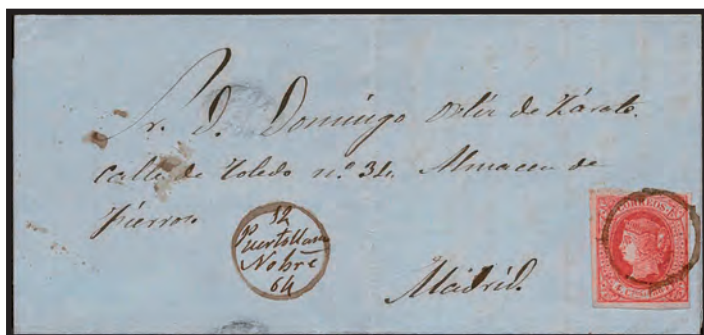 Sr. D. Domingo Ortiz de Zárate.
calle de Toledo nº 34. Almacen de
fierros
12
Puertollano
Nobre
64
Madrid.
CORREOS
4 CUARTOS